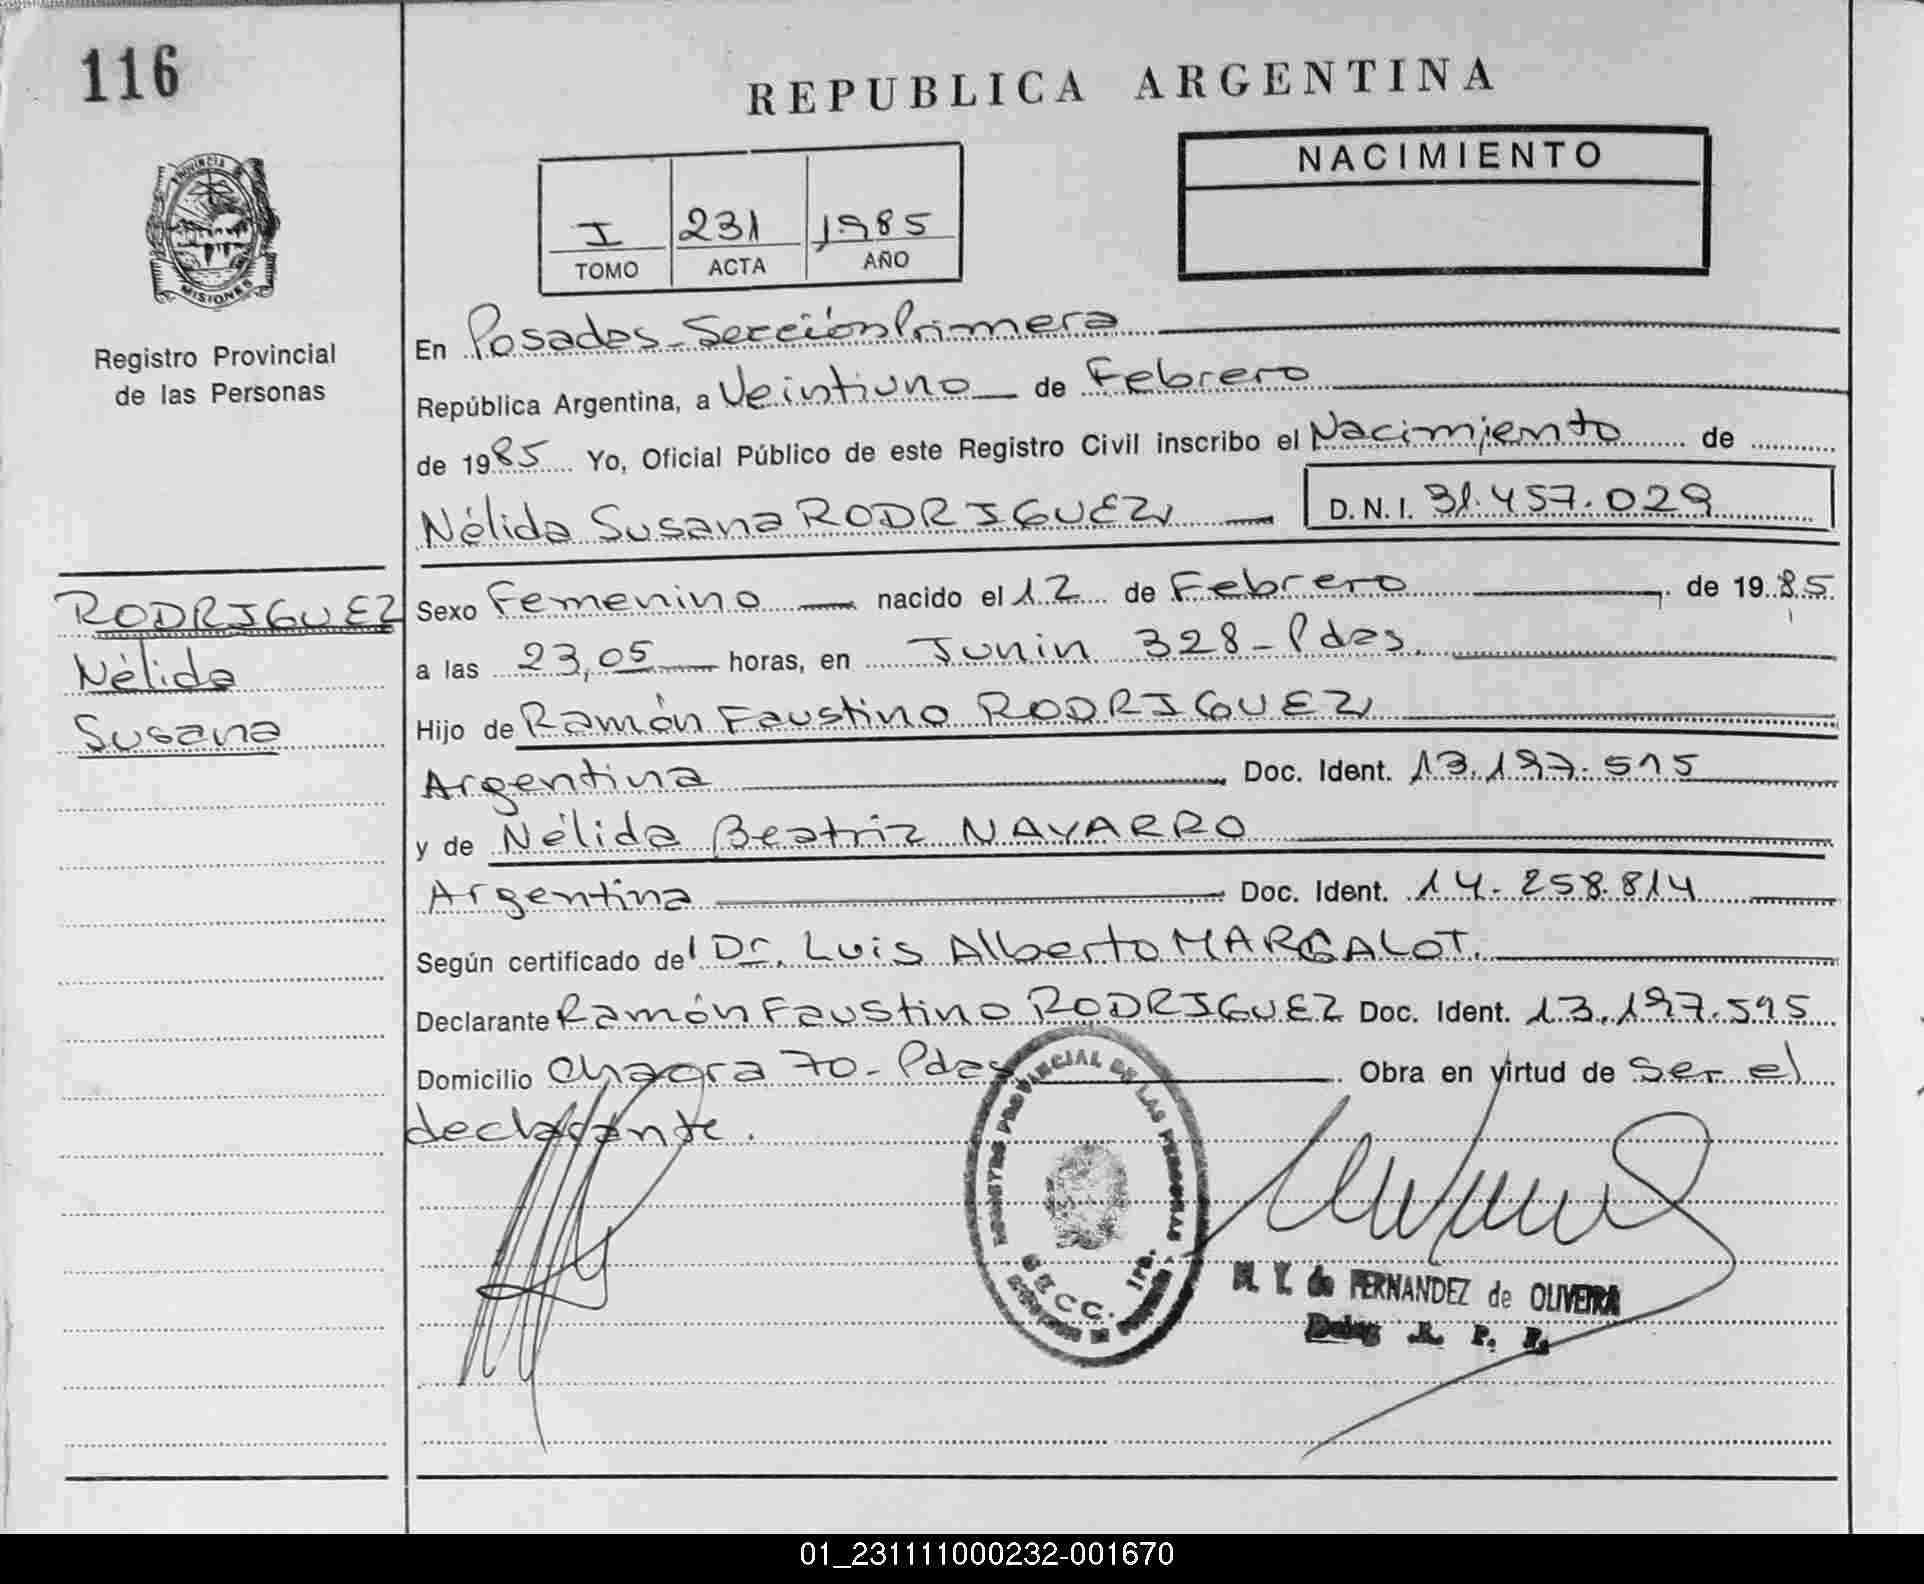 116
REPUBLICA ARGENTINA
PROVINCIA
MISIONES
Registro Provincial
de las Personas
I 231 1985
TOMO ACTA AÑO
NACIMIENTO
En Posadas - Sección Primera
República Argentina, a Veintiuno de Febrero
de 1985 Yo, Oficial Público de este Registro Civil inscribo el Nacimiento de
Nélida Susana RODRIGUEZ D.N.I. 31.457.029
RODRIGUEZ
Nélida
Susana
Sexo Femenino nacido el 12 de Febrero, de 1985
a las 23,05 horas, en Junin 328 - Pdas.
Hijo de Ramón Faustino RODRIGUEZ
Argentina Doc. Ident. 13.197.515
y de Nélida Beatriz NAVARRO
Argentina Doc. Ident. 14.258.814
Según certificado del Dr. Luis Alberto MARGALOT.
Declarante Ramón Faustino RODRIGUEZ Doc. Ident. 13.197.595
Domicilio Chacra 70 - Pdas Obra en virtud de Ser el
declarante.
REGISTRO PROVINCIAL DE LAS PERSONAS
SECC. 1ra.
M. Y. de FERNANDEZ de OLIVEIRA
Deleg. R. P. P.
01_231111000232-001670